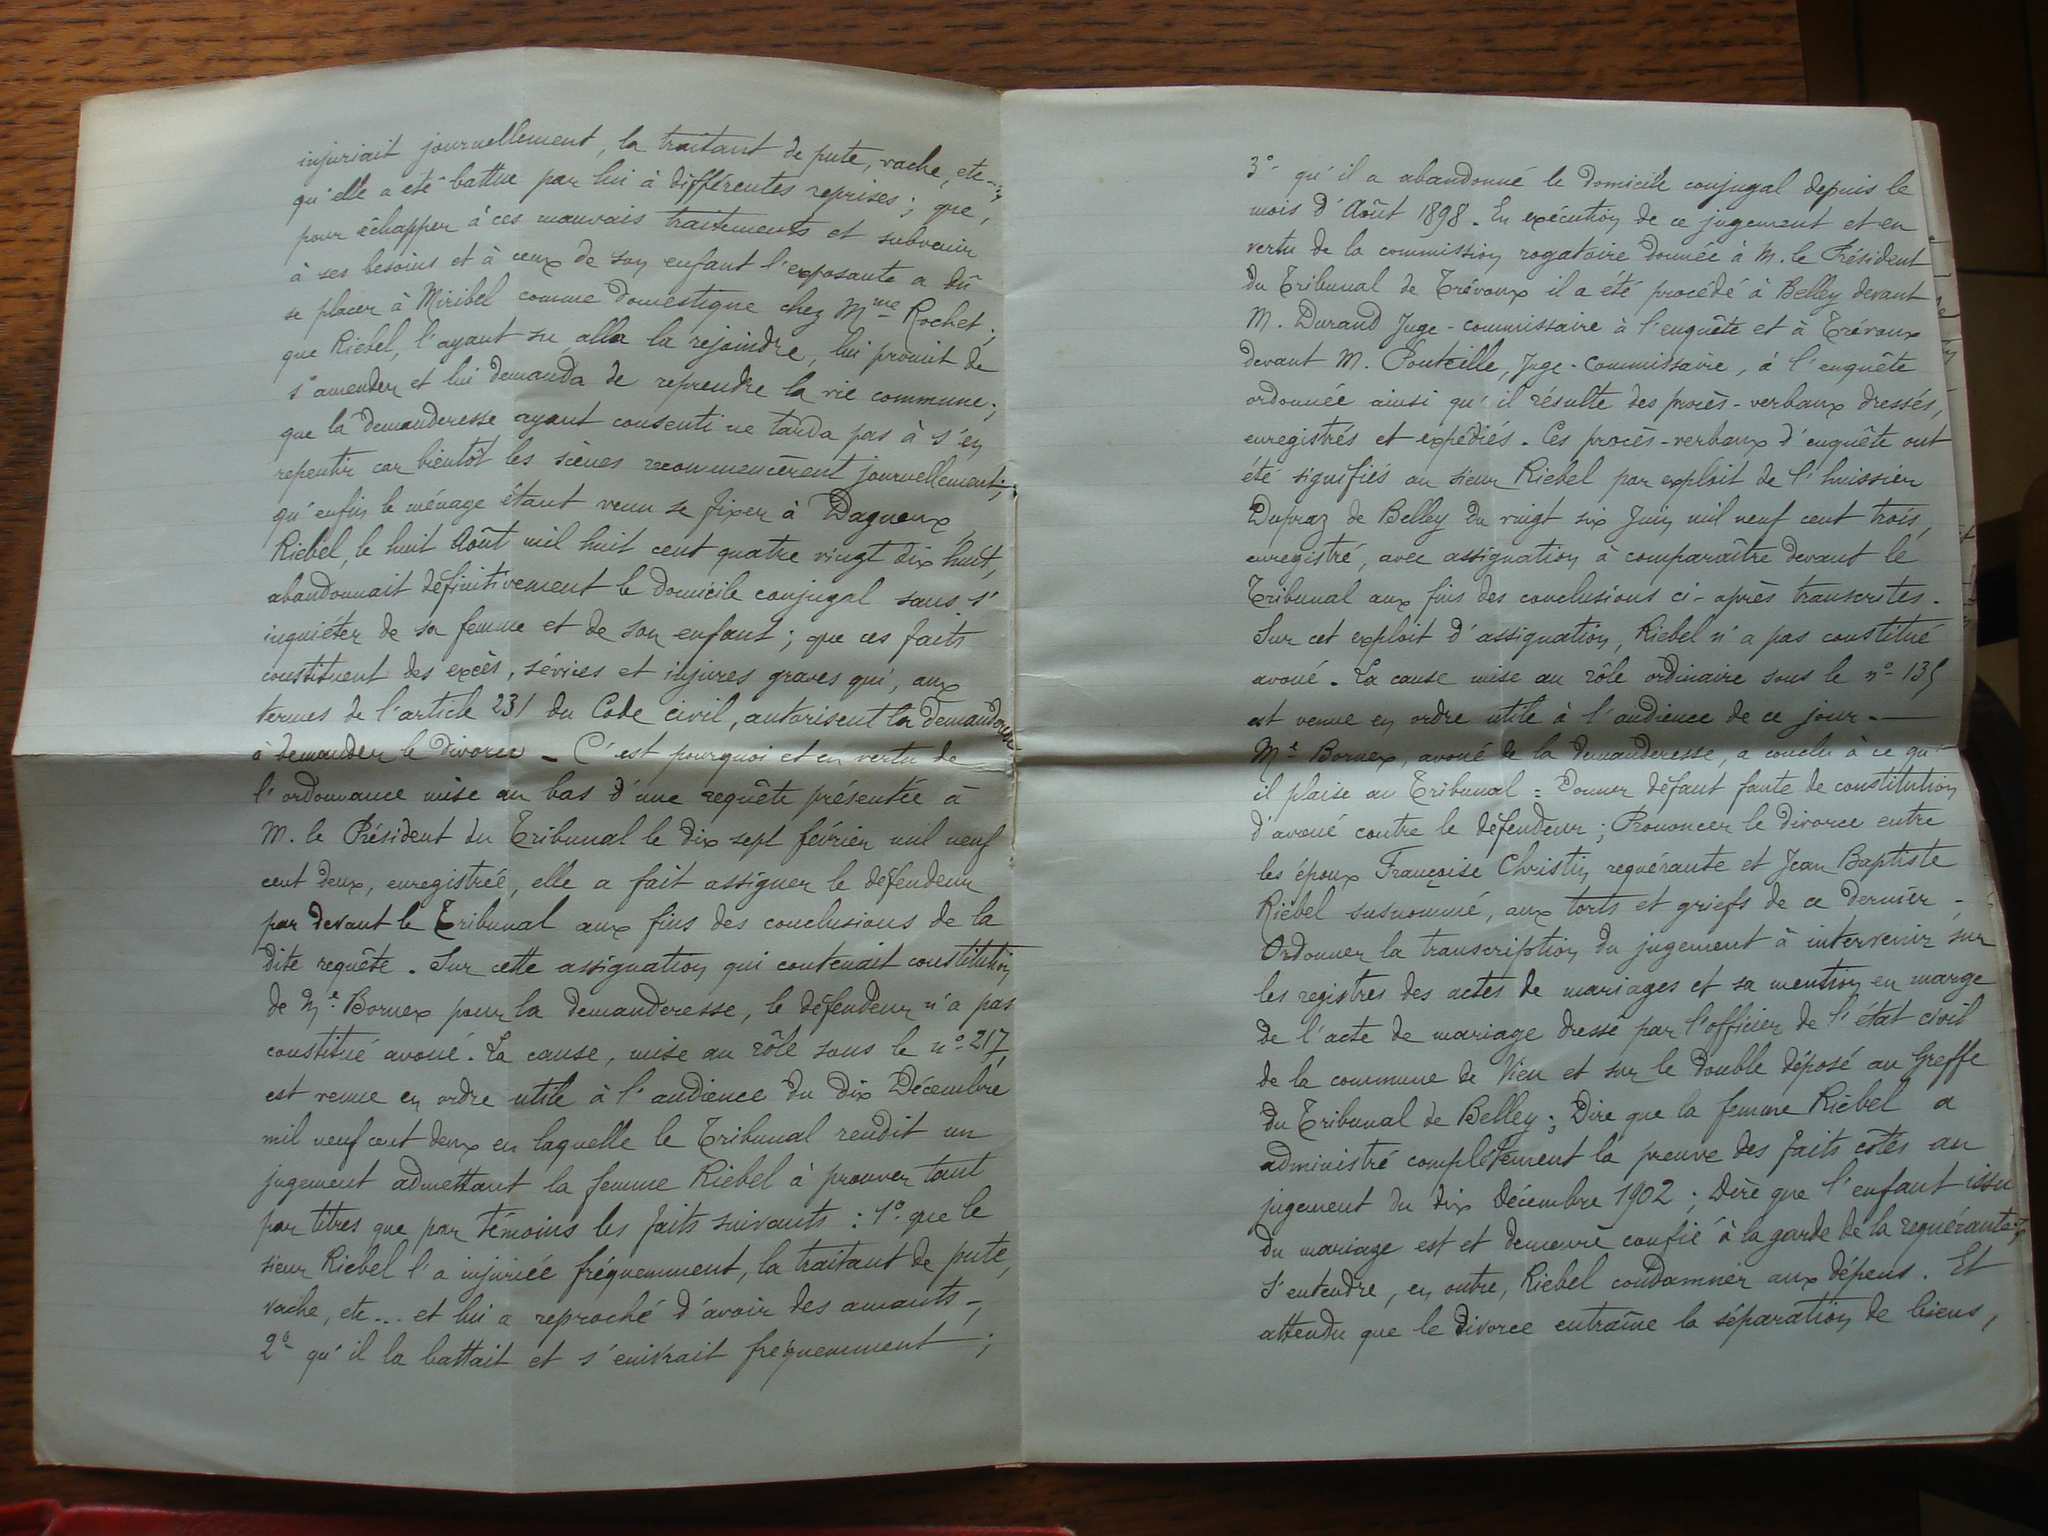 injuriait journellement, la traitant de pute, vache, etc –;
qu'elle a été battue par lui à différentes reprises; que,
pour échapper à ces mauvais traitements et subvenir
à ses besoins et à ceux de son enfant l'exposante a dû
se placer à Miribel comme domestique chez Mme Rochet;
que Riebel, l'ayant su alla la rejoindre, lui promit de
s'amender et lui demanda de reprendre la vie commune;
que la demanderesse ayant consenti ne tarda pas à s'en
repentir car bientôt les scènes recommencèrent journellement;
qu'enfin le ménage étant venu se fixer à Dagneux
Riebel, le huit Août mil huit cent quatre vingt dix huit,
abandonnait définitivement le domicile conjugal sans s'
inquiéter de sa femme et de son enfant; que ces faits
constituent des excès, sévices et injures graves qui, aux
termes de l'article 231 du Code civil, autorisent la demanderesse
à demander le divorce – C'est pourquoi et en vertu de
l'ordonnance mise au bas d'une requête présentée à
M. le Président du Tribunal le dix sept février mil neuf
cent deux, enregistrée, elle a fait assigner le défendeur
par devant le Tribunal aux fins des conclusions de la
dite requête. Sur cette assignation qui contenait constitution
de Me Bornex pour la demanderesse, le défendeur n'a pas
constitué avoué. La cause, mise au rôle sous le n° 217
est venue en ordre utile à l'audience du dix Décembre
mil neuf cent deux en laquelle le Tribunal rendit un
jugement admettant la femme Riebel à prouver tant
par titres que par témoins les faits suivants : 1° que le
sieur Riebel l'a injuriée fréquemment, la traitant de pute,
vache, etc... et lui a reproché d'avoir des amants –;
2° qu'il la battait et s'enivrait fréquemment ;
3° qu'il a abandonné le domicile conjugal depuis le
mois d'Août 1898. En exécution de ce jugement et en
vertu de la commission rogatoire donnée à M. le Président
du Tribunal de Trévoux il a été procédé à Belley devant
M. Durand Juge-commissaire à l'enquête et à Trévoux
devant M. Ponteille, Juge-Commissaire, à l'enquête
ordonnée ainsi qu'il résulte des procès-verbaux dressés,
enregistrés et expédiés. Ces procès-verbaux d'enquête ont
été signifiés au sieur Riebel par exploit de l'huissier
Dupraz de Belley du vingt six Juin mil neuf cent trois,
enregistré, avec assignation à comparaître devant le
Tribunal aux fins des conclusions ci-après transcrites.
Sur cet exploit d'assignation, Riebel n'a pas constitué
avoué. La cause mise au rôle ordinaire sous le n° 135
est venue en ordre utile à l'audience de ce jour. —
Me Bornex, avoué de la demanderesse, a conclu à ce qu'
il plaise au Tribunal : Donner défaut faute de constitution
d'avoué contre le défendeur; Prononcer le divorce entre
les époux Françoise Christin requérante et Jean Baptiste
Riebel susnommé, aux torts et griefs de ce dernier –
Ordonner la transcription du jugement à intervenir sur
les registres des actes de mariages et sa mention en marge
de l'acte de mariage dressé par l'officier de l'état civil
de la commune de Vieu et sur le double déposé au Greffe
du Tribunal de Belley; Dire que la femme Riebel a
administré complètement la preuve des faits cotés au
jugement du dix Décembre 1902 ; Dire que l'enfant issu
du mariage est et demeure confié à la garde de la requérante;
S'entendre, en outre, Riebel condamner aux dépens. Et
attendu que le divorce entraîne la séparation de biens,